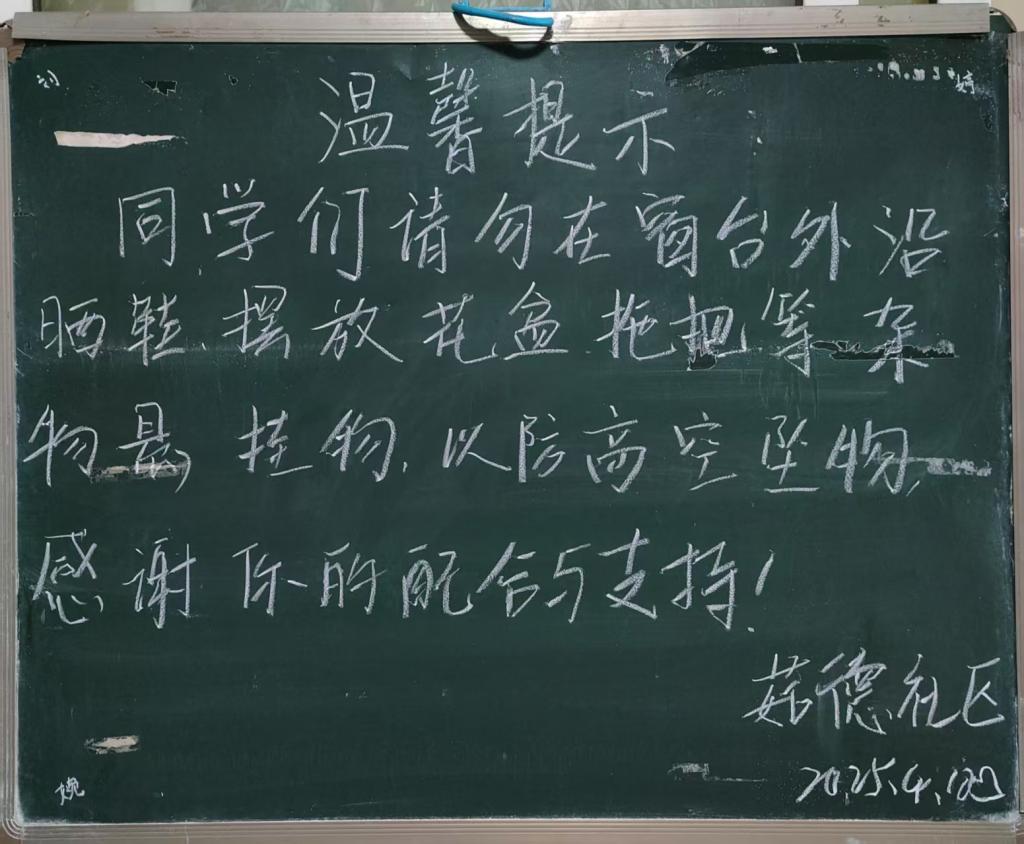 温馨提示
同学们请勿在窗台外沿
晒鞋、摆放花盆、拖把等杂
物悬挂物,以防高空坠物,
感谢你的配合与支持!
茹德社区
2025.4.